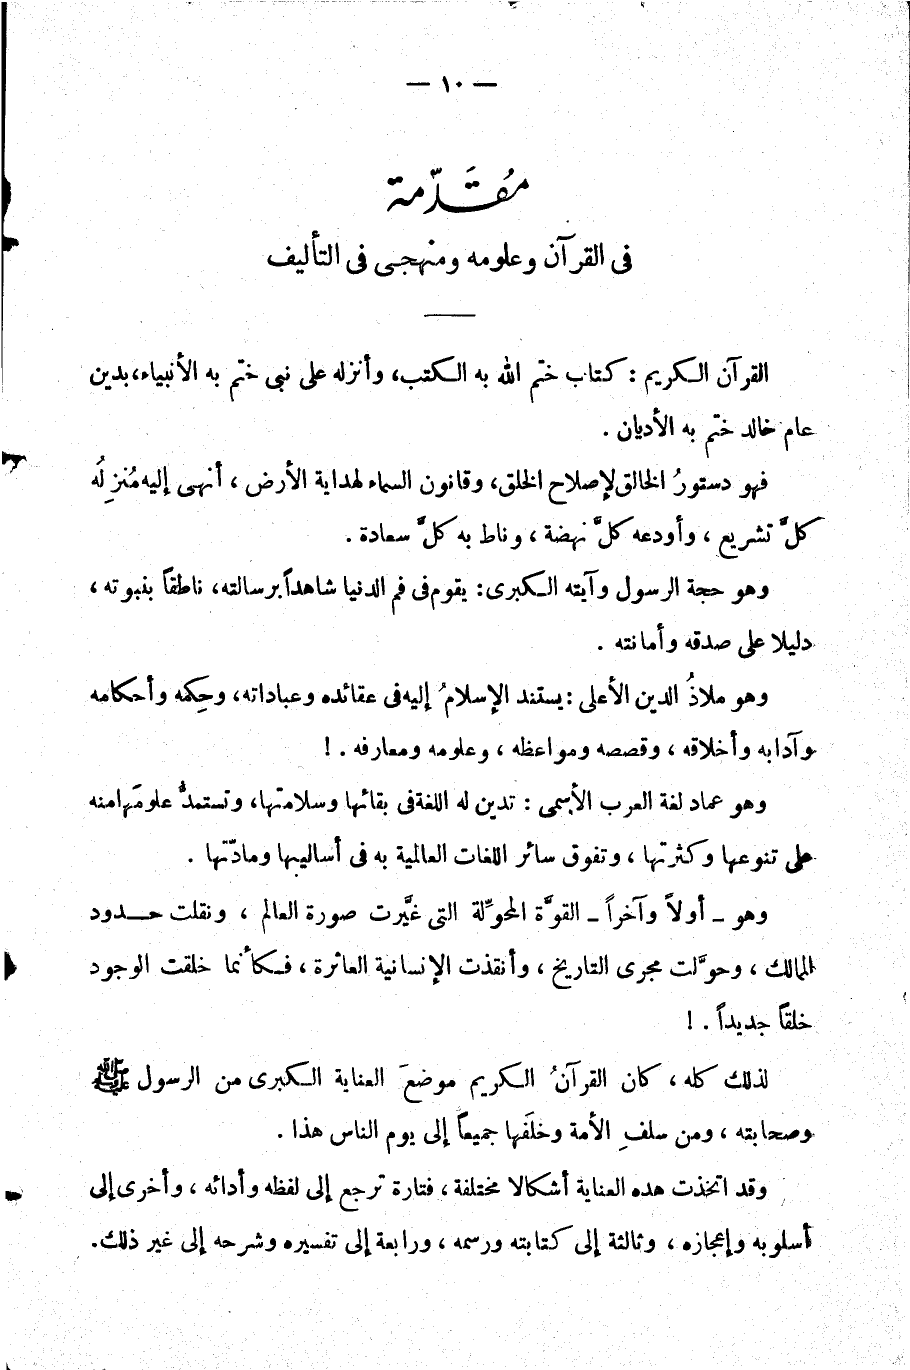 — ١٠ —
مُقَدّمة
فى القرآن وعلومه ومنهجى فى التأليف
القرآن الكريم : كتاب ختم الله به الكتب، وأنزله على نبى ختم به الأنبياء، بدين
عام خالد ختم به الأديان .
فهو دستورُ الخالق لإصلاح الخلق، وقانون السماء لهداية الأرض ، أنهى إليه مُنزِلُه
كلَّ تشريع ، وأودعه كلَّ نهضة ، وناط به كلَّ سعادة .
وهو حجة الرسول وآيته الكبرى: يقوم فى فم الدنيا شاهداً برسالته، ناطقاً بنبوته ،
دليلا على صدقه وأمانته .
وهو ملاذُ الدين الأعلى : يستند الإسلامُ إليه فى عقائده وعباداته، وحِكمه وأحكامه
وآدابه وأخلاقه ، وقصصه ومواعظه ، وعلومه ومعارفه . !
وهو عماد لغة العرب الأسمى : تدين له اللغة فى بقائها وسلامتها، وتستمدُّ علومَها منه
على تنوعها وكثرتها ، وتفوق سائر اللغات العالمية به فى أساليبها ومادّتها .
وهو ـ أولاً وآخراً ـ القوَّة المحوِّلة التى غيَّرت صورة العالم ، ونقلت حـدود
الممالك ، وحوَّلت مجرى التاريخ ، وأنقذت الإنسانية العاثرة ، فكأنما خلقت الوجود
خلقاً جديداً . !
لذلك كله ، كان القرآنُ الكريم موضعَ العناية الكبرى من الرسول ﷺ
وصحابته ، ومن سلفِ الأمة وخلَفها جميعاً إلى يوم الناس هذا .
وقد اتخذت هذه العناية أشكالا مختلفة ، فتارة ترجع إلى لفظه وأدائه ، وأخرى إلى
أسلوبه وإعجازه ، وثالثة إلى كتابته ورسمه ، ورابعة إلى تفسيره وشرحه إلى غير ذلك.